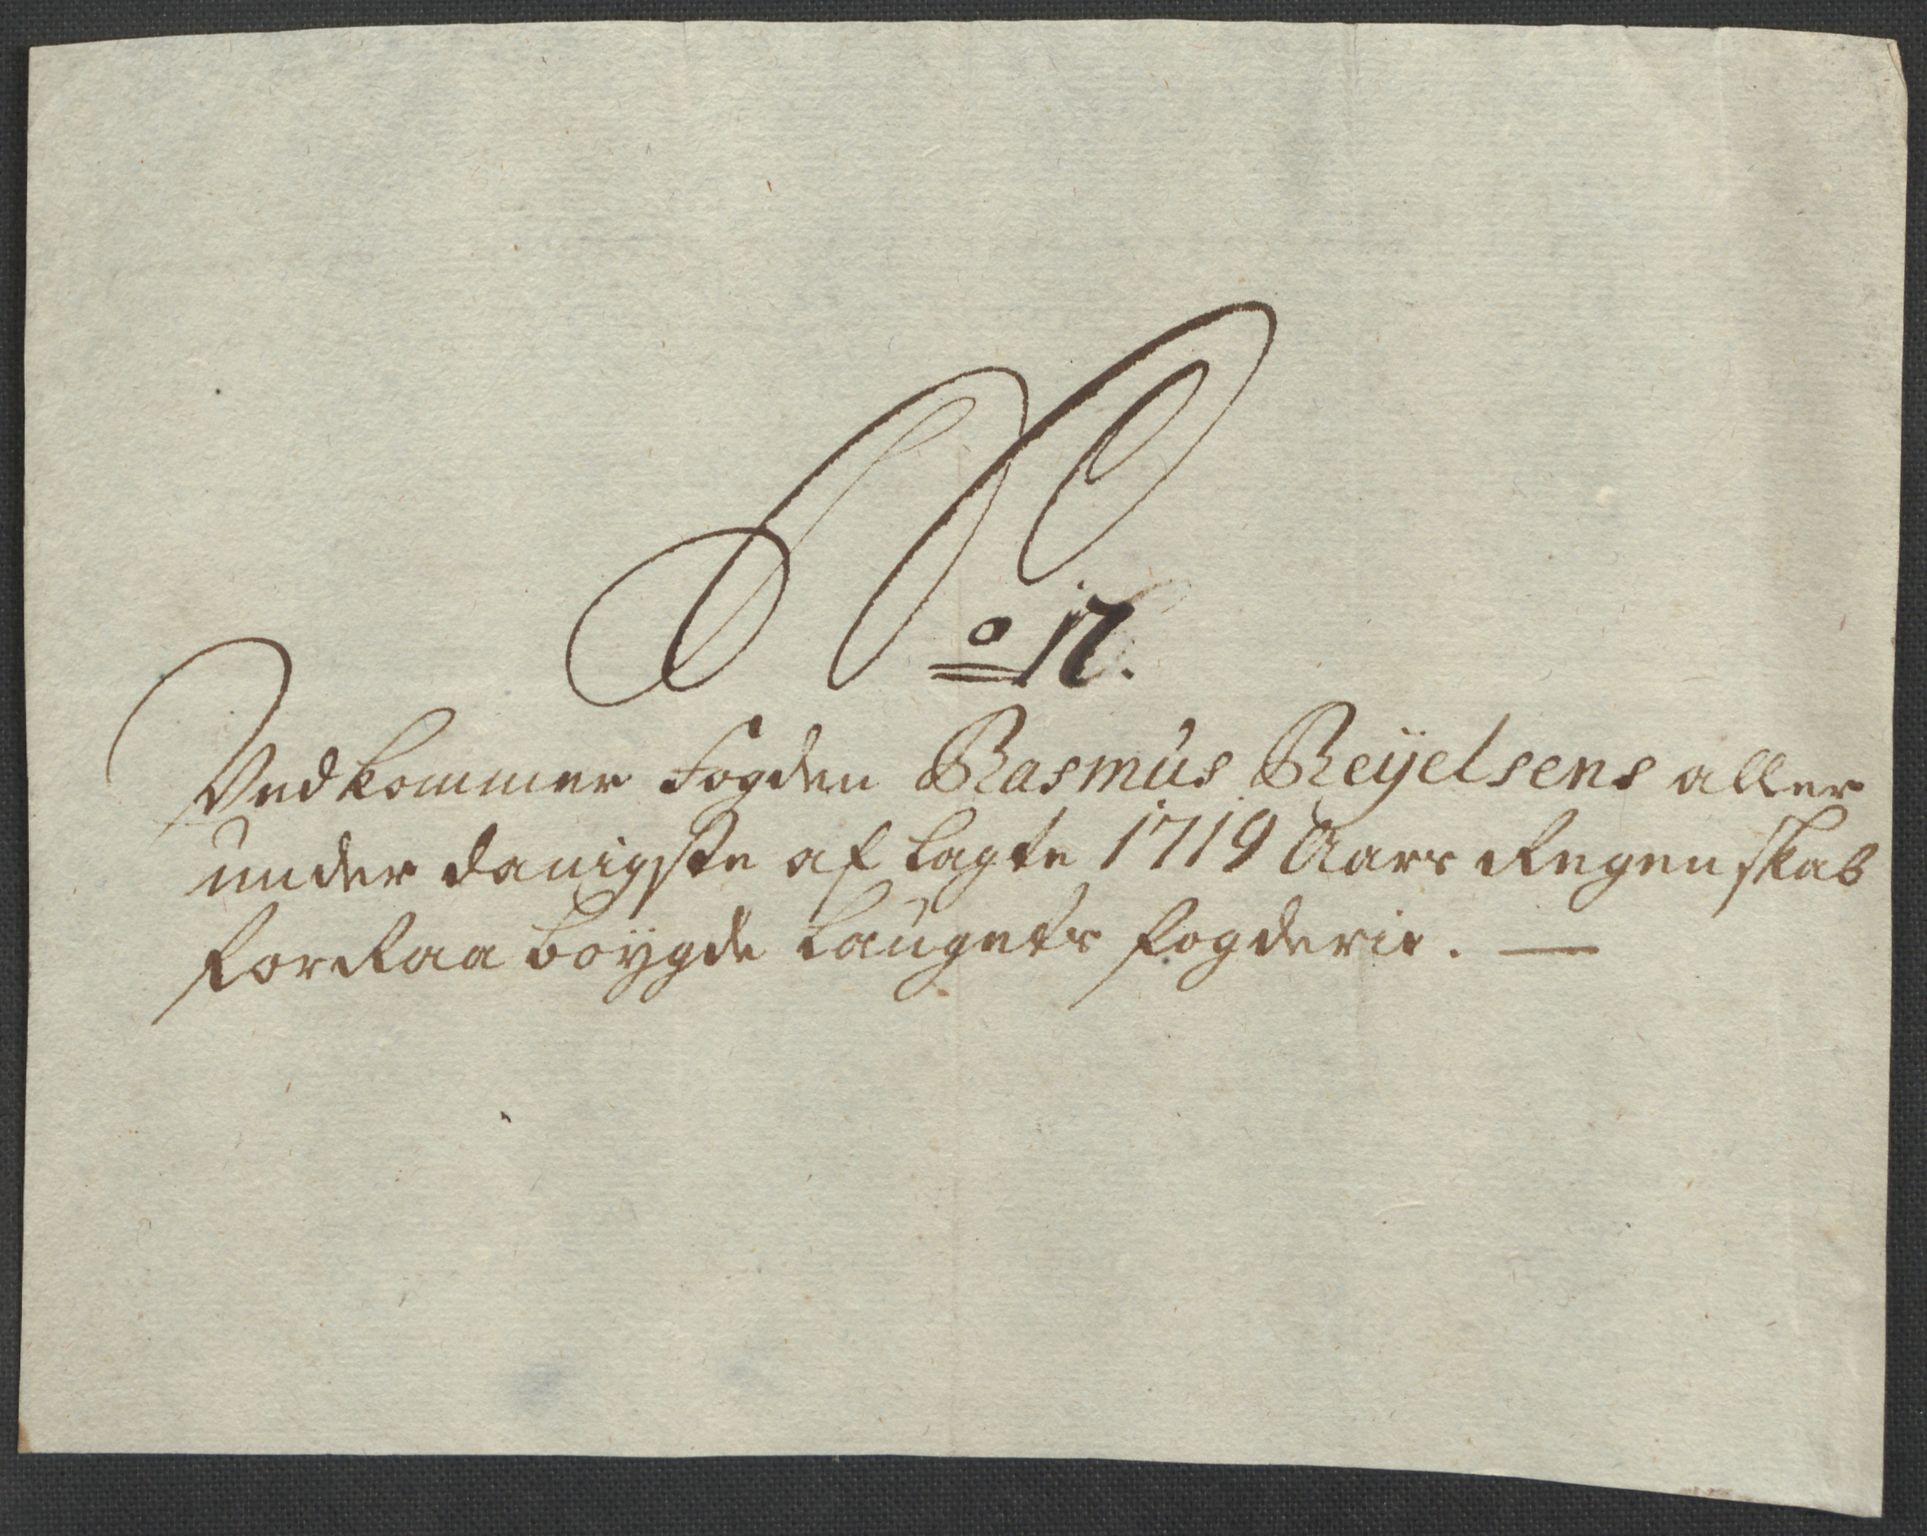 No 17.
Vedkommer Fogden Rasmus Reijelsens aller
under danigste af lagte 1719 Aars Regenskab
for Raabøygde Laugets fogderie. —